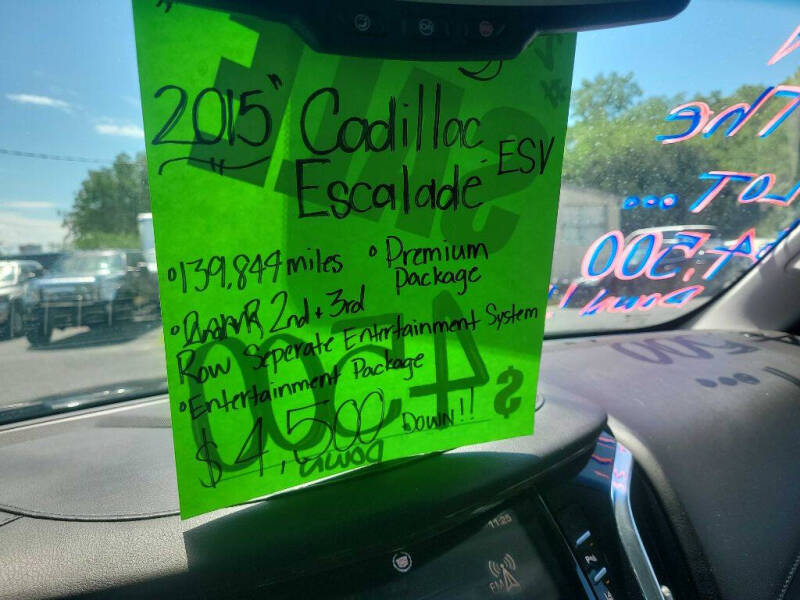 2015 Cadillac
Escalade ESV
139,844 miles
Premium
Package
2nd + 3rd
Row Seperate Entertainment System
Entertainment Package
$4,500 DOWN!!
$4500
Down
THE
LOT...
$4,500
Down!
11:25
FM